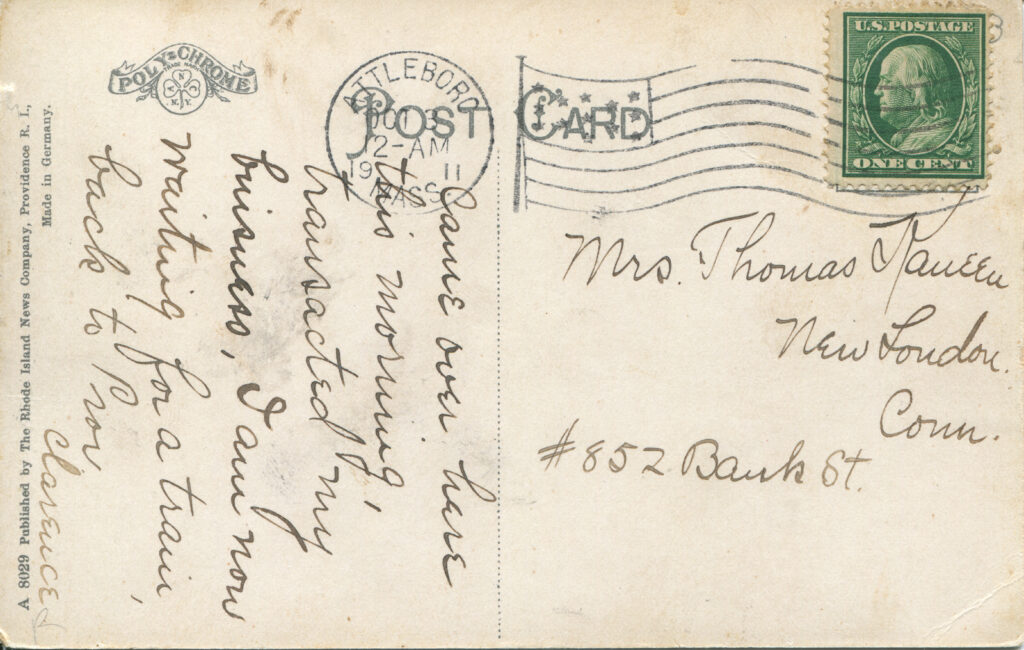 A 8029 Published by The Rhode Island News Company, Providence R. I.,
Made in Germany.
POLY-CHROME
TRADE MARK
N.Y.
POST CARD
ATTLEBORO
3
2-AM
19 11
MASS
U.S. POSTAGE
ONE CENT
Came over here
this morning,
transacted my
buisness, I am now
waiting for a train,
back to Prov
Clarence
Mrs. Thomas
New London.
Conn.
#852 Bank St.